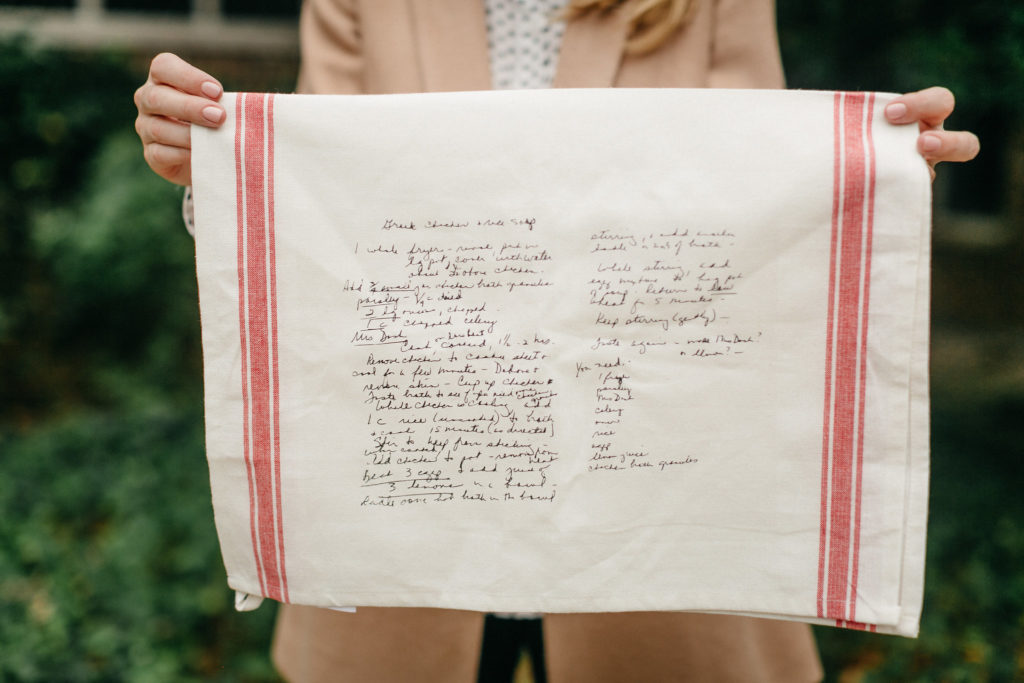 Greek Chicken & rice Soup
1 whole fryer - rinse, put in
big pot, cover with water
about 2" above chicken.
Add jar chicken broth granules
parsley - 1/4 c dried
2 lg onions, chopped
1 c chopped celery
Mrs Dash
Cook covered, 1 1/2 - 2 hrs.
Remove chicken to cookie sheet &
cool for a few minutes - Debone &
remove skin - Cup up chicken &
Taste broth to see if you need
While chicken is cooling add
1 c rice (uncooked) to broth
& cook 15 minutes (as directed)
Stir to keep from sticking -
Add chicken to pot - remove from
heat
Beat 3 eggs & add juice of
3 lemons in a bowl -
Ladle some hot broth in the bowl
stirring, & add another
ladle of broth -
While stirring add
egg mixture to big pot
of soup. Return to low
heat for 5 minutes -
Keep stirring (gently) -
Taste again - more Mrs Dash?
or lemon? -
You need:
1 fryer
parsley
Mrs Dash
celery
onion
rice
eggs
lemon juice
chicken broth granules